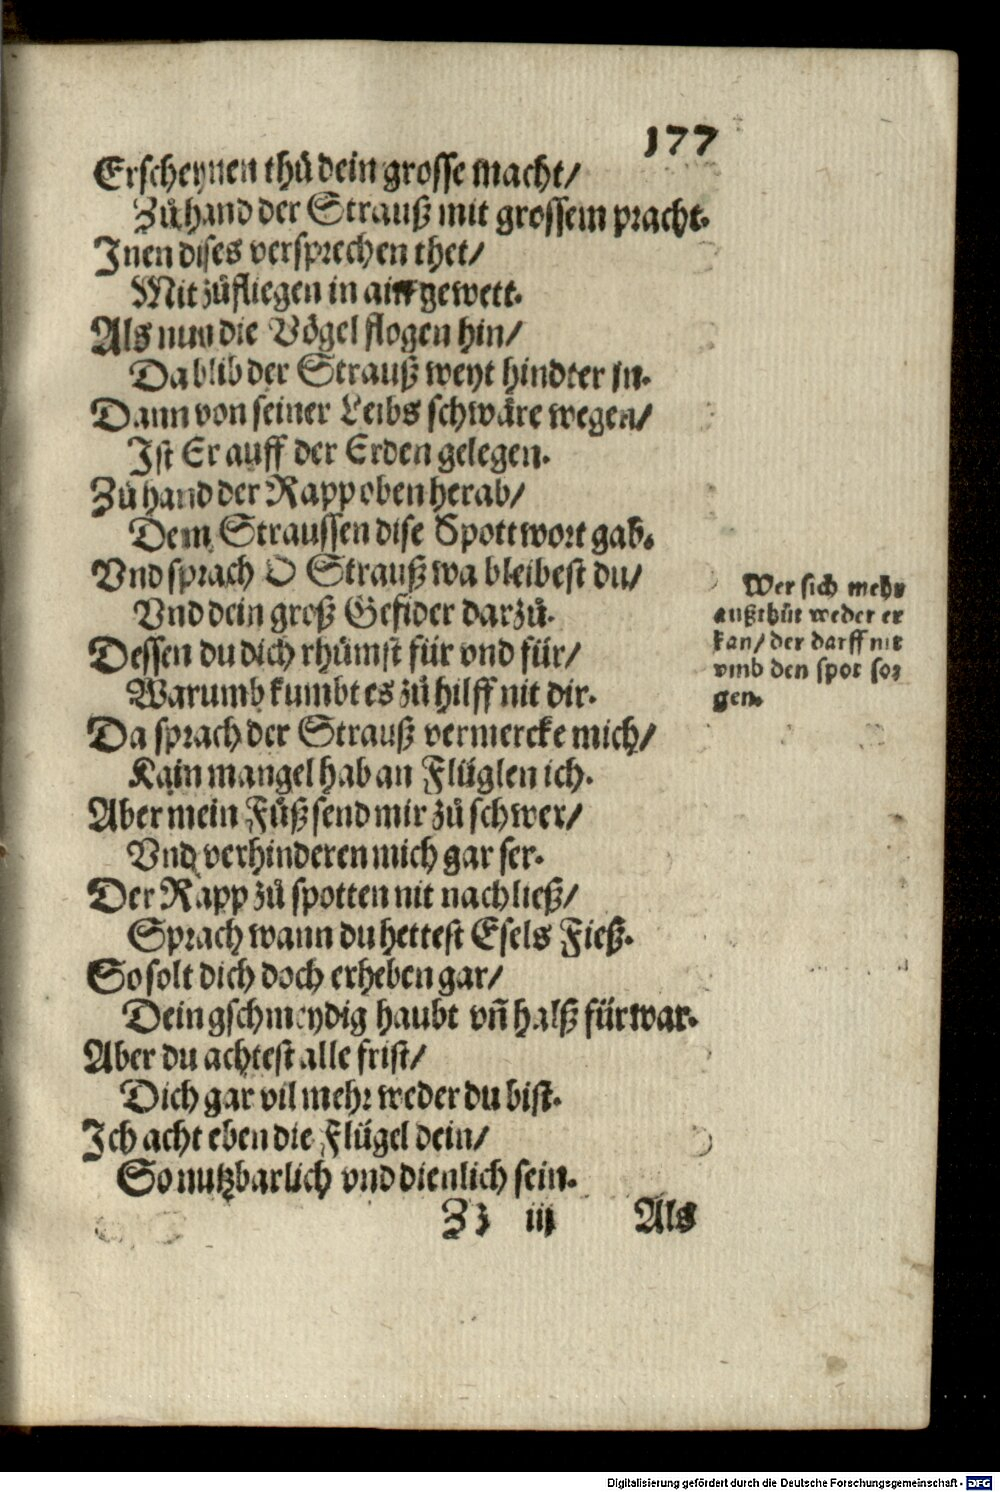 177
Erscheynen thů dein grosse macht/
Zů hand der Strauß mit grossem pracht.
Jnen dises versprechen thet/
Mit zůfliegen in ain gewett.
Als nun die Vögel flogen hin/
Da blib der Strauß weyt hindter jn.
Dann von seiner Leibs schwäre wegen/
Jst Er auff der Erden gelegen.
Zů hand der Rapp oben herab/
Dem Straussen dise Spottwort gab.
Vnd sprach O Strauß wa bleibest du/
Vnd dein groß Gefider darzů.
Dessen du dich rhůmst für vnd für/
Warumb kumbt es zů hilff nit dir.
Da sprach der Strauß vermercke mich/
Kain mangel hab an Flüglen ich.
Aber mein Füß send mir zů schwer/
Vnd verhinderen mich gar ser.
Der Rapp zů spotten nit nachließ/
Sprach wann du hettest Esels Fieß.
So solt dich doch erheben gar/
Dein gschmeydig haubt vñ halß fürwar.
Aber du achtest alle frist/
Dich gar vil mehr weder du bist.
Jch acht eben die Flügel dein/
So nutzbarlich vnd dienlich sein.
Wer sich mehr
außthůt weder er
kan/ der darff nit
vmb den spot sor
gen.
Zz iij Als
Digitalisierung gefördert durch die Deutsche Forschungsgemeinschaft - DFG